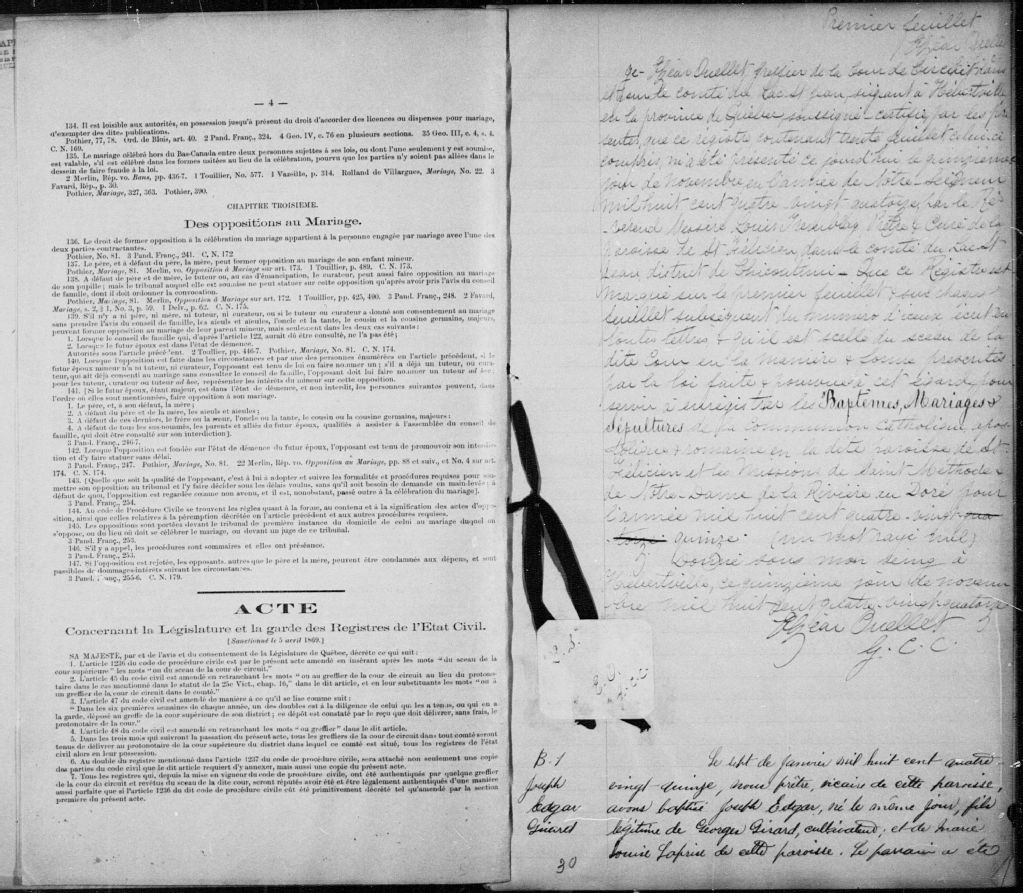 — 4 —
134. Il est loisible aux autorités, en possession jusqu'à présent du droit d'accorder des licences ou dispenses pour mariage,
d'exempter des dites publications.
Pothier, 77, 78. Ord. de Blois, art. 40. 2 Pand. Franç., 324. 4 Geo. IV, c. 76 en plusieurs sections. 35 Geo. III, c. 4, s. 4.
C. N. 169.
135. Le mariage célébré hors du Bas-Canada entre deux personnes sujettes à ses lois, ou dont l'une seulement y est soumise,
est valable, s'il est célébré dans les formes usitées au lieu de la célébration, pourvu que les parties n'y soient pas allées dans le
dessein de faire fraude à la loi.
2 Merlin, Rép. vo. Bans, pp. 436-7. 1 Touillier, No. 577. 1 Vazeille, p. 314. Rolland de Villargues, Mariage, No. 22. 3
Favard, Rép., p. 30.
Pothier, Mariage, 327, 363. Pothier, 390.
CHAPITRE TROISIEME.
Des oppositions au Mariage.
136. Le droit de former opposition à la célébration du mariage appartient à la personne engagée par mariage avec l'une des
deux parties contractantes.
Pothier, No. 81. 3 Pand. Franç., 241. C. N. 172
137. Le père, et à défaut du père, la mère, peut former opposition au mariage de son enfant mineur.
Pothier, Mariage, 81. Merlin, vo. Opposition à Mariage sur art. 173. 1 Touillier, p. 489. C. N. 173.
138. A défaut de père et de mère, le tuteur ou, au cas d'émancipation, le curateur, peut aussi faire opposition au mariage
de son pupille; mais le tribunal auquel elle est soumise ne peut statuer sur cette opposition qu'après avoir pris l'avis du conseil
de famille, dont il doit ordonner la convocation.
Pothier, Mariage, 81. Merlin, Opposition à Mariage sur art. 172. 1 Touillier, pp. 425, 490. 3 Pand. Franç., 248. 2 Favard,
Mariage, s. 2, § 1, No. 3, p. 59. 1 Delv., p. 62. C. N. 175.
139. S'il n'y a ni père, ni mère, ni tuteur, ni curateur, ou si le tuteur ou curateur a donné son consentement au mariage
sans prendre l'avis du conseil de famille, les aïeuls et aïeules, l'oncle et la tante, le cousin et la cousine germains, majeurs,
peuvent former opposition au mariage de leur parent mineur, mais seulement dans les deux cas suivants:
1. Lorsque le conseil de famille qui, d'après l'article 122, aurait dû être consulté, ne l'a pas été;
2. Lorsque le futur époux est dans l'état de démence.
Autorités sous l'article précédent. 2 Touillier, pp. 446-7. Pothier, Mariage, No. 81. C. N. 174.
140. Lorsque l'opposition est faite dans les circonstances et par une des personnes énumérées en l'article précédent, si le
futur époux mineur n'a ni tuteur, ni curateur, l'opposant est tenu de lui en faire nommer un; s'il a déjà un tuteur, ou cura-
teur, qui ait déjà consenti au mariage sans consulter le conseil de famille, l'opposant doit lui faire nommer un tuteur ad hoc;
pour les tuteur, curateur ou tuteur ad hoc, représenter les intérêts du mineur sur cette opposition.
141. [Si le futur époux, étant majeur, est dans l'état de démence, et non interdit, les personnes suivantes peuvent, dans
l'ordre où elles sont mentionnées, faire opposition à son mariage.
1. Le père, et, à son défaut, la mère;
2. A défaut du père et de la mère, les aïeuls et aïeules;
3. A défaut de ces derniers, le frère ou la sœur, l'oncle ou la tante, le cousin ou la cousine germains, majeurs;
4. A défaut de tous les sus-nommés, les parents et alliés du futur époux, qualifiés à assister à l'assemblée du conseil de
famille, qui doit être consulté sur son interdiction].
3 Pand. Franç., 246-7.
142. Lorsque l'opposition est fondée sur l'état de démence du futur époux, l'opposant est tenu de promouvoir son interdic-
tion et d'y faire statuer sans délai.
3 Pand. Franç., 247. Pothier, Mariage, No. 81. 22 Merlin, Rép. vo. Opposition au Mariage, pp 88 et suiv., et No. 4 sur art.
174. C. N. 174.
143. [Quelle que soit la qualité de l'opposant, c'est à lui à adopter et suivre les formalités et procédures requises pour sou-
mettre son opposition au tribunal et l'y faire décider sous les délais voulus, sans qu'il soit besoin de demande en mainlevée; à
défaut de quoi, l'opposition est regardée comme non avenue, et il est, nonobstant, passé outre à la célébration du mariage].
3 Pand. Franç., 254.
144. Au code de Procédure Civile se trouvent les règles quant à la forme, au contenu et à la signification des actes d'oppo-
sition, ainsi que celles relatives à la péremption décrétée en l'article précédent et aux autres procédures requises.
145. Les oppositions sont portées devant le tribunal de première instance du domicile de celui au mariage duquel on
s'oppose, ou du lieu où doit se célébrer le mariage, ou devant un juge de ce tribunal.
3 Pand. Franç., 253.
146. S'il y a appel, les procédures sont sommaires et elles ont préséance.
3 Pand. Franç., 253.
147. Si l'opposition est rejetée, les opposants, autres que le père et la mère, peuvent être condamnés aux dépens, et sont
passibles de dommages-intérêts suivant les circonstances.
3 Pand. Franç., 255-6. C. N. 179.
ACTE
Concernant la Législature et la garde des Registres de l'Etat Civil.
[Sanctionné le 5 avril 1869.]
SA MAJESTÉ, par et de l'avis et du consentement de la Législature de Québec, décrète ce qui suit:
1. L'article 1236 du code de procédure civile est par le présent acte amendé en insérant après les mots "du sceau de la
cour supérieure" les mots "ou du sceau de la cour de circuit."
2. L'article 45 du code civil est amendé en retranchant les mots "ou au greffier de la cour de circuit au lieu du protono-
taire dans le cas mentionné dans le statut de la 25e Vict., chap. 16," dans le dit article, et en leur substituant les mots "ou à
un greffier de la cour de circuit dans le comté."
3. L'article 47 du code civil est amendé de manière à ce qu'il se lise comme suit:
"Dans les six premières semaines de chaque année, un des doubles est à la diligence de celui qui les a tenus, ou qui en a
la garde, déposé au greffe de la cour supérieure de son district; ce dépôt est constaté par le reçu que doit délivrer, sans frais, le
protonotaire de la cour."
4. L'article 48 du code civil est amendé en retranchant les mots "ou greffier" dans le dit article.
5. Dans les trois mois qui suivront la passation du présent acte, tous les greffiers de la cour de circuit dans tout comté seront
tenus de délivrer au protonotaire de la cour supérieure du district dans lequel ce comté est situé, tous les registres de l'état
civil alors en leur possession.
6. Au double du registre mentionné dans l'article 1237 du code de procédure civile, sera attaché non seulement une copie
des parties du code civil que le dit article requiert d'y annexer, mais aussi une copie du présent acte.
7. Tous les registres qui, depuis la mise en vigueur du code de procédure civile, ont été authentiqués par quelque greffier
de la cour de circuit et revêtus du sceau de la dite cour, seront réputés avoir été et être légalement authentiqués d'une manière
aussi parfaite que si l'article 1236 du dit code de procédure civile eût été primitivement décrété tel qu'amendé par la section
première du présent acte.
Premier feuillet
Elzéar Ouellet
Je Elzéar Ouellet, greffier de la Cour de Circuit dans
et pour le comté du Lac St Jean, siégeant à Hébertville
en la province de Québec soussigné certifie par les pré
sentes, que ce registre contenant trente feuillets celui-ci
compris, m'a été présenté ce jourd'hui le quinzième
jour de novembre en l'année de Notre-Seigneur
mil huit cent quatre-vingt quatorze, par le Ré-
vérend Messire Louis Prêtre & Curé de la
paroisse de St Félicien, dans le comté du Lac St
Jean district de Chicoutimi — Que ce Registre est
marqué sur le premier feuillet & sous chaque
feuillet subséquent du numéro d'iceux écrit en
toutes lettres & qu'il est scellé du sceau de la
dite Cour en la manière & forme prescrites
par la loi faite & pourvue à cet égard, pour
servir à enregistrer les Baptêmes, Mariages &
Sépultures de la communion catholique apos-
tolique & romaine en la dite paroisse de St
Félicien et les Missions de Saint Méthode &
de Notre-Dame de la Rivière au Doré pour
l'année mil huit cent quatre-vingt
quinze. (un mot rayé nul)
Donné sous mon seing à
Hébertville, ce quinzième jour de novem
bre mil huit cent quatre-vingt quatorze
Elzéar Ouellet
G. C. C
L. S.
E. O.
G. C. C
B. 1
Joseph
Edgar
Girard
30
Le sept de janvier mil huit cent quatre
vingt quinze, nous prêtre, vicaire de cette paroisse,
avons baptisé Joseph Edgar, né le même jour, fils
légitime de Georges Girard, cultivateur, et de Marie
Louise Laprise de cette paroisse. Le parrain a été